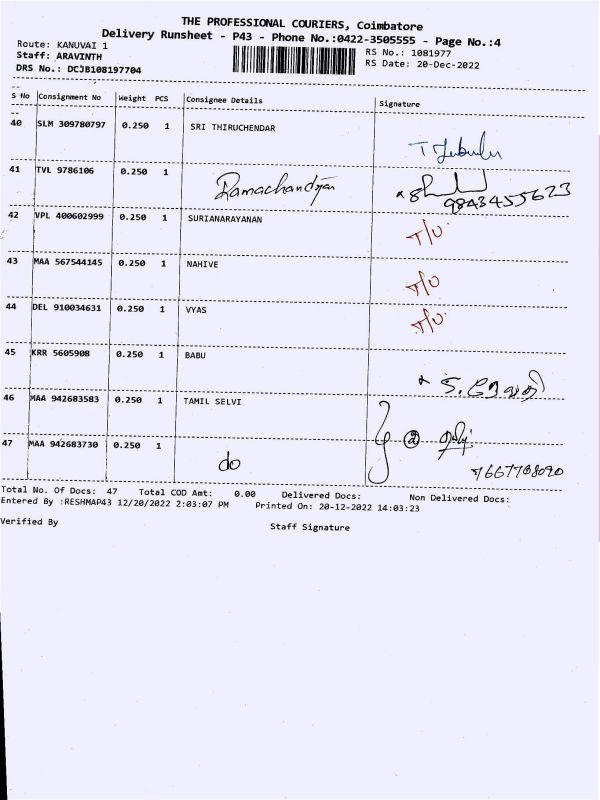 THE PROFESSIONAL COURIERS, Coimbatore
Delivery Runsheet - P43 - Phone No.:0422-3505555 - Page No.:4
Route: KANUVAI 1
RS No.: 1081977
Staff: ARAVINTH
RS Date: 20-Dec-2022
DRS No.: DCJB108197704
S No Consignment No Weight PCS Consignee Details Signature
40 SLM 309780797 0.250 1 SRI THIRUCHENDAR
41 TVL 9786106 0.250 1 Ramachandran
9843455623
42 VPL 400602999 0.250 1 SURIANARAYANAN T/U
43 MAA 567544145 0.250 1 NAHIVE T/U
44 DEL 910034631 0.250 1 VYAS T/U
45 KRR 5605908 0.250 1 BABU
46 MAA 942683583 0.250 1 TAMIL SELVI
47 MAA 942683730 0.250 1 do
7667708090
Total No. Of Docs: 47 Total COD Amt: 0.00 Delivered Docs: Non Delivered Docs:
Entered By :RESHMAP43 12/20/2022 2:03:07 PM Printed On: 20-12-2022 14:03:23
Verified By
Staff Signature